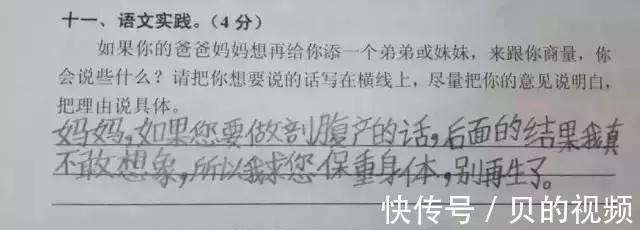 十一、语文实践。(4分)
如果你的爸爸妈妈想再给你添一个弟弟或妹妹，来跟你商量，你
会说些什么？请把你想要说的话写在横线上，尽量把你的意见说明白，
把理由说具体。
妈妈，如果您要做剖腹产的话，后面的结果我真
不敢想象，所以我求您保重身体，别再生了。
快传号 / 贝的视频